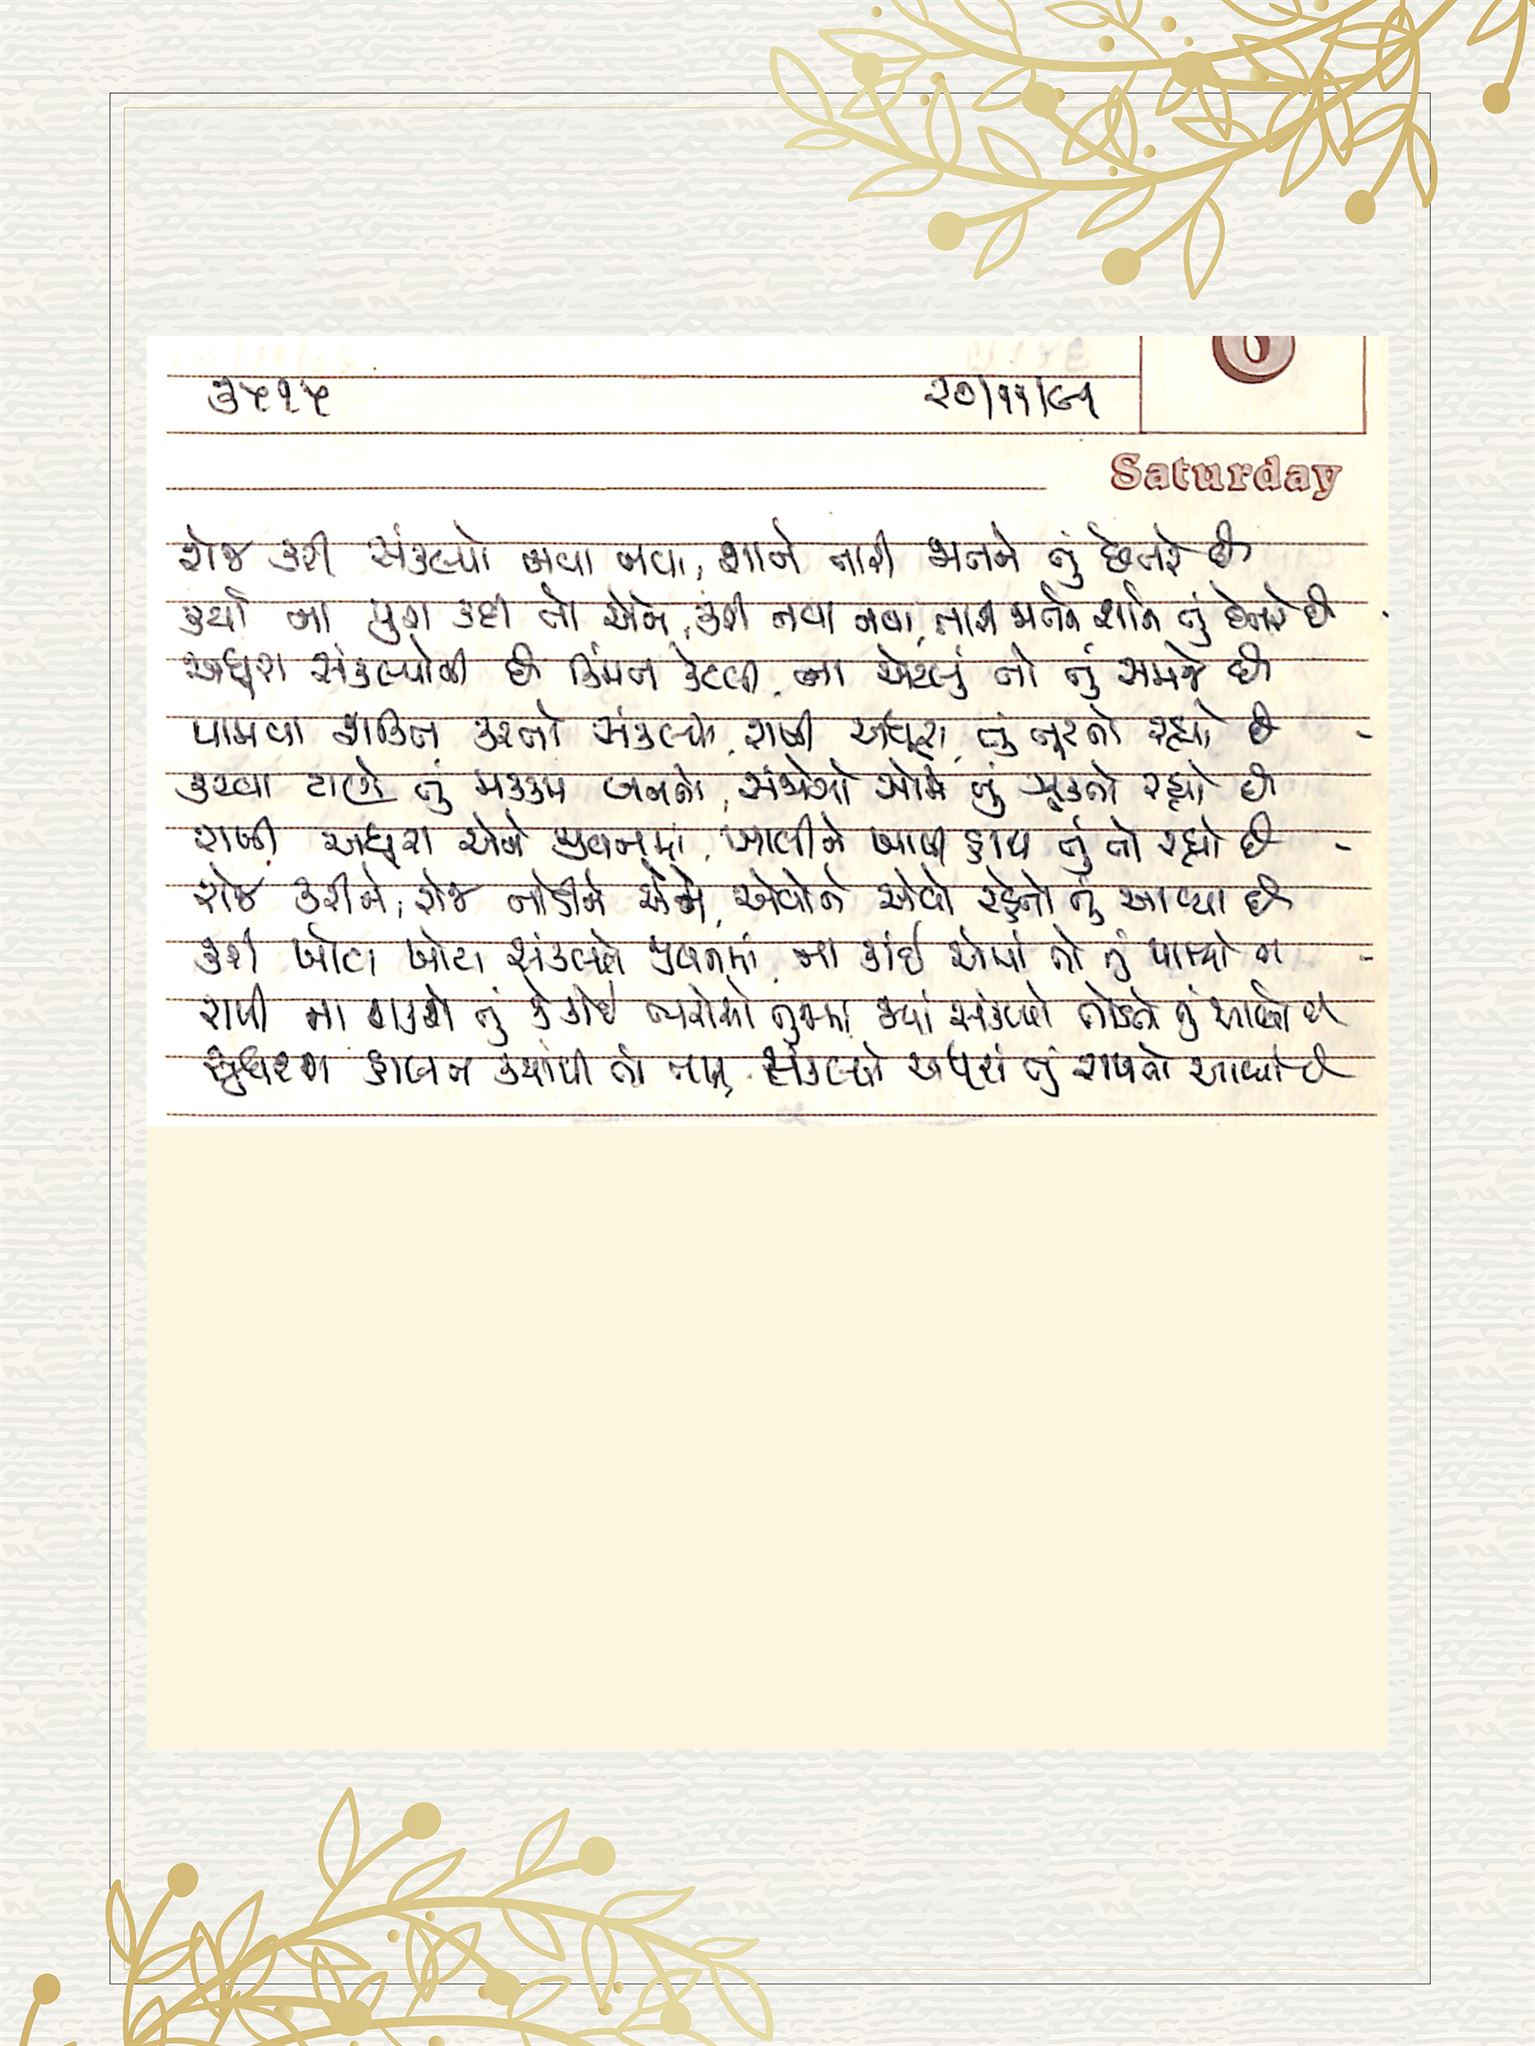 ૩૫૧૫ ૨૭/૧૧/૯૧
Saturday
રોજ કરી સંકલ્પો નવા નવા, શાને તારી જાતને તું છેતરે છે
કર્યા ના પુરા કદી તો એને, કરી નવા નવા, તારી જાતને શાને તું છેતરે છે
અધૂરા સંકલ્પોની છે કિંમત કેટલી, ના એટલું તો તું સમજે છે
પામવા શક્તિ કરતો સંકલ્પો, રાખી અધૂરા, તું તૂટતો રહ્યો છે
કરવા ટાણે તું મક્કમ બનતો, સંજોગો સામે તું ઝૂકતો રહ્યો છે
રાખી અધૂરા એને જીવનમાં, ખાલીને ખાલી હાથ તું તો રહ્યો છે
રોજ કરીને, રોજ તોડીને એને, એવોને એવો રહેતો તું આવ્યો છે
કરી ખોટા ખોટા સંકલ્પો જીવનમાં, ના કાંઈ એમાં તો તું પામ્યો છે
રાખી ના શકશે તું કે કોઈ ભરોસો તુજમાં, જ્યાં સંકલ્પો તોડતો તું આવ્યો છે
સુધરશે હાલત ક્યાંથી તો તારી, સંકલ્પો અધૂરાં તું રાખતો આવ્યો છે